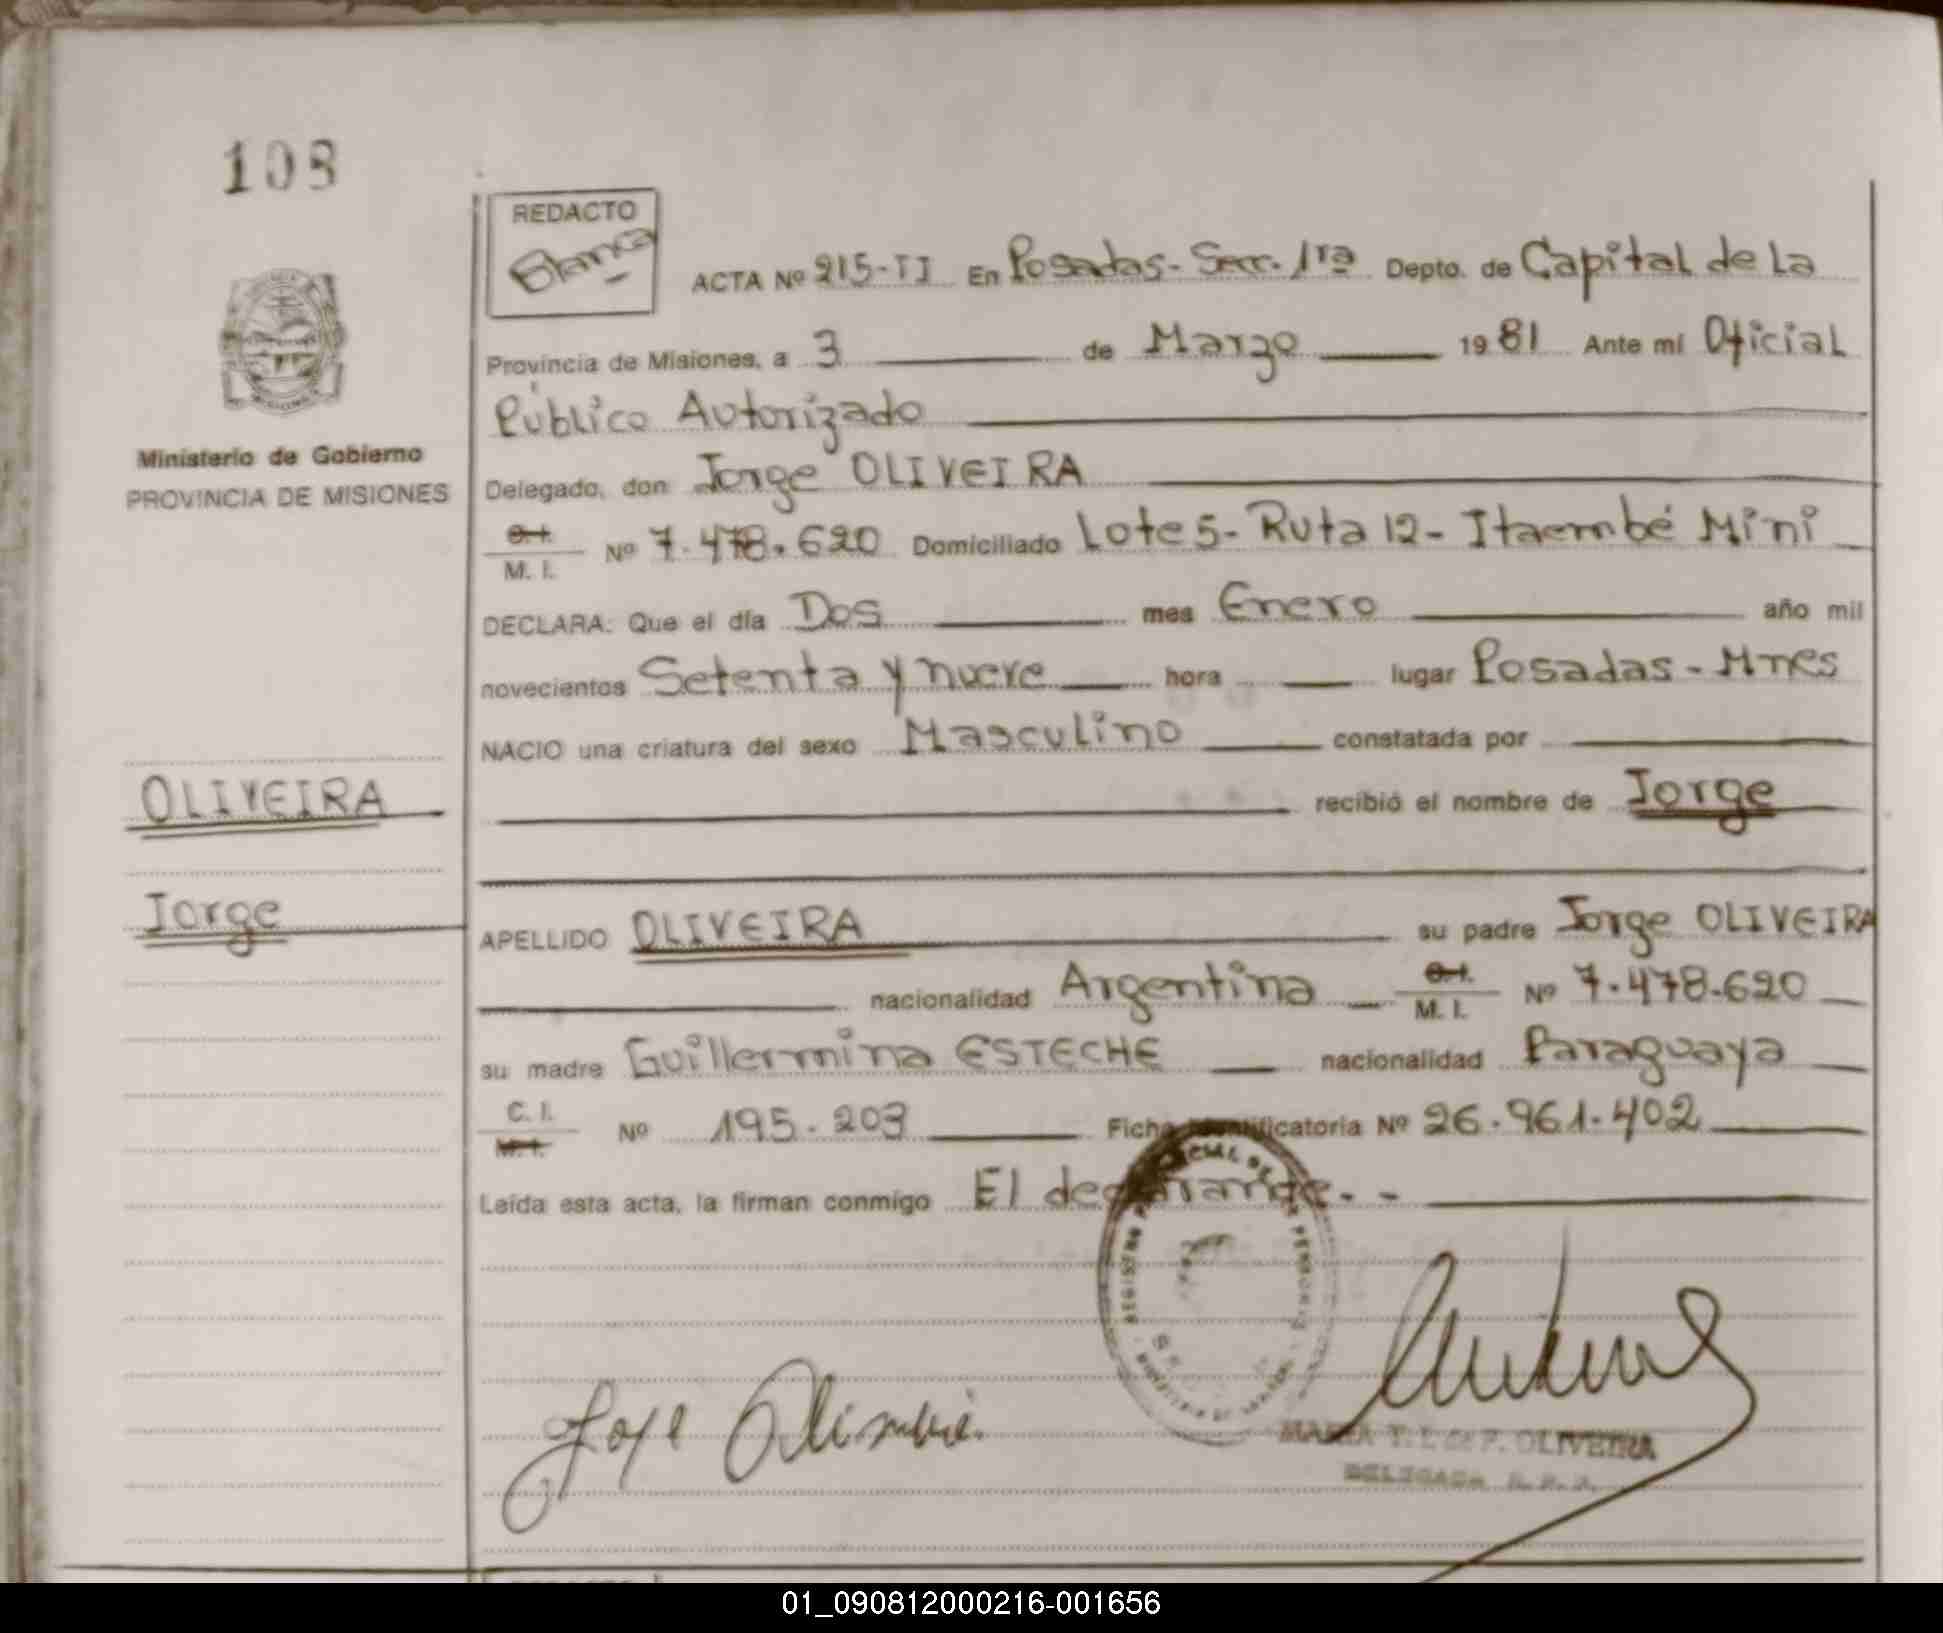 108
REDACTO
Blanca
ACTA Nº 215-II En Posadas- Secc. 1ra Depto. de Capital de la
Provincia de Misiones, a 3 de Marzo 1981 Ante mí Oficial
Público Autorizado
Ministerio de Gobierno
PROVINCIA DE MISIONES
Delegado, don Jorge OLIVEIRA
C. I.
M. I. Nº 7.478.620 Domiciliado Lote 5- Ruta 12- Itaembé Mini
DECLARA: Que el día Dos mes Enero año mil
novecientos Setenta y nueve hora lugar Posadas - Mnes
NACIO una criatura del sexo Masculino constatada por
OLIVEIRA
recibió el nombre de Jorge
Jorge
APELLIDO OLIVEIRA su padre Jorge OLIVEIRA
nacionalidad Argentina C. I. M. I. Nº 7.478.620
su madre Guillermina ESTECHE nacionalidad Paraguaya
C. I.
M. I. Nº 195.203 Ficha identificatoria Nº 26.961.402
Leída esta acta, la firman conmigo El declarante. -
REGISTRO DE
Jorge Oliveira
MARIA T. I. de F. OLIVEIRA
DELEGADA R. P. P.
01_090812000216-001656